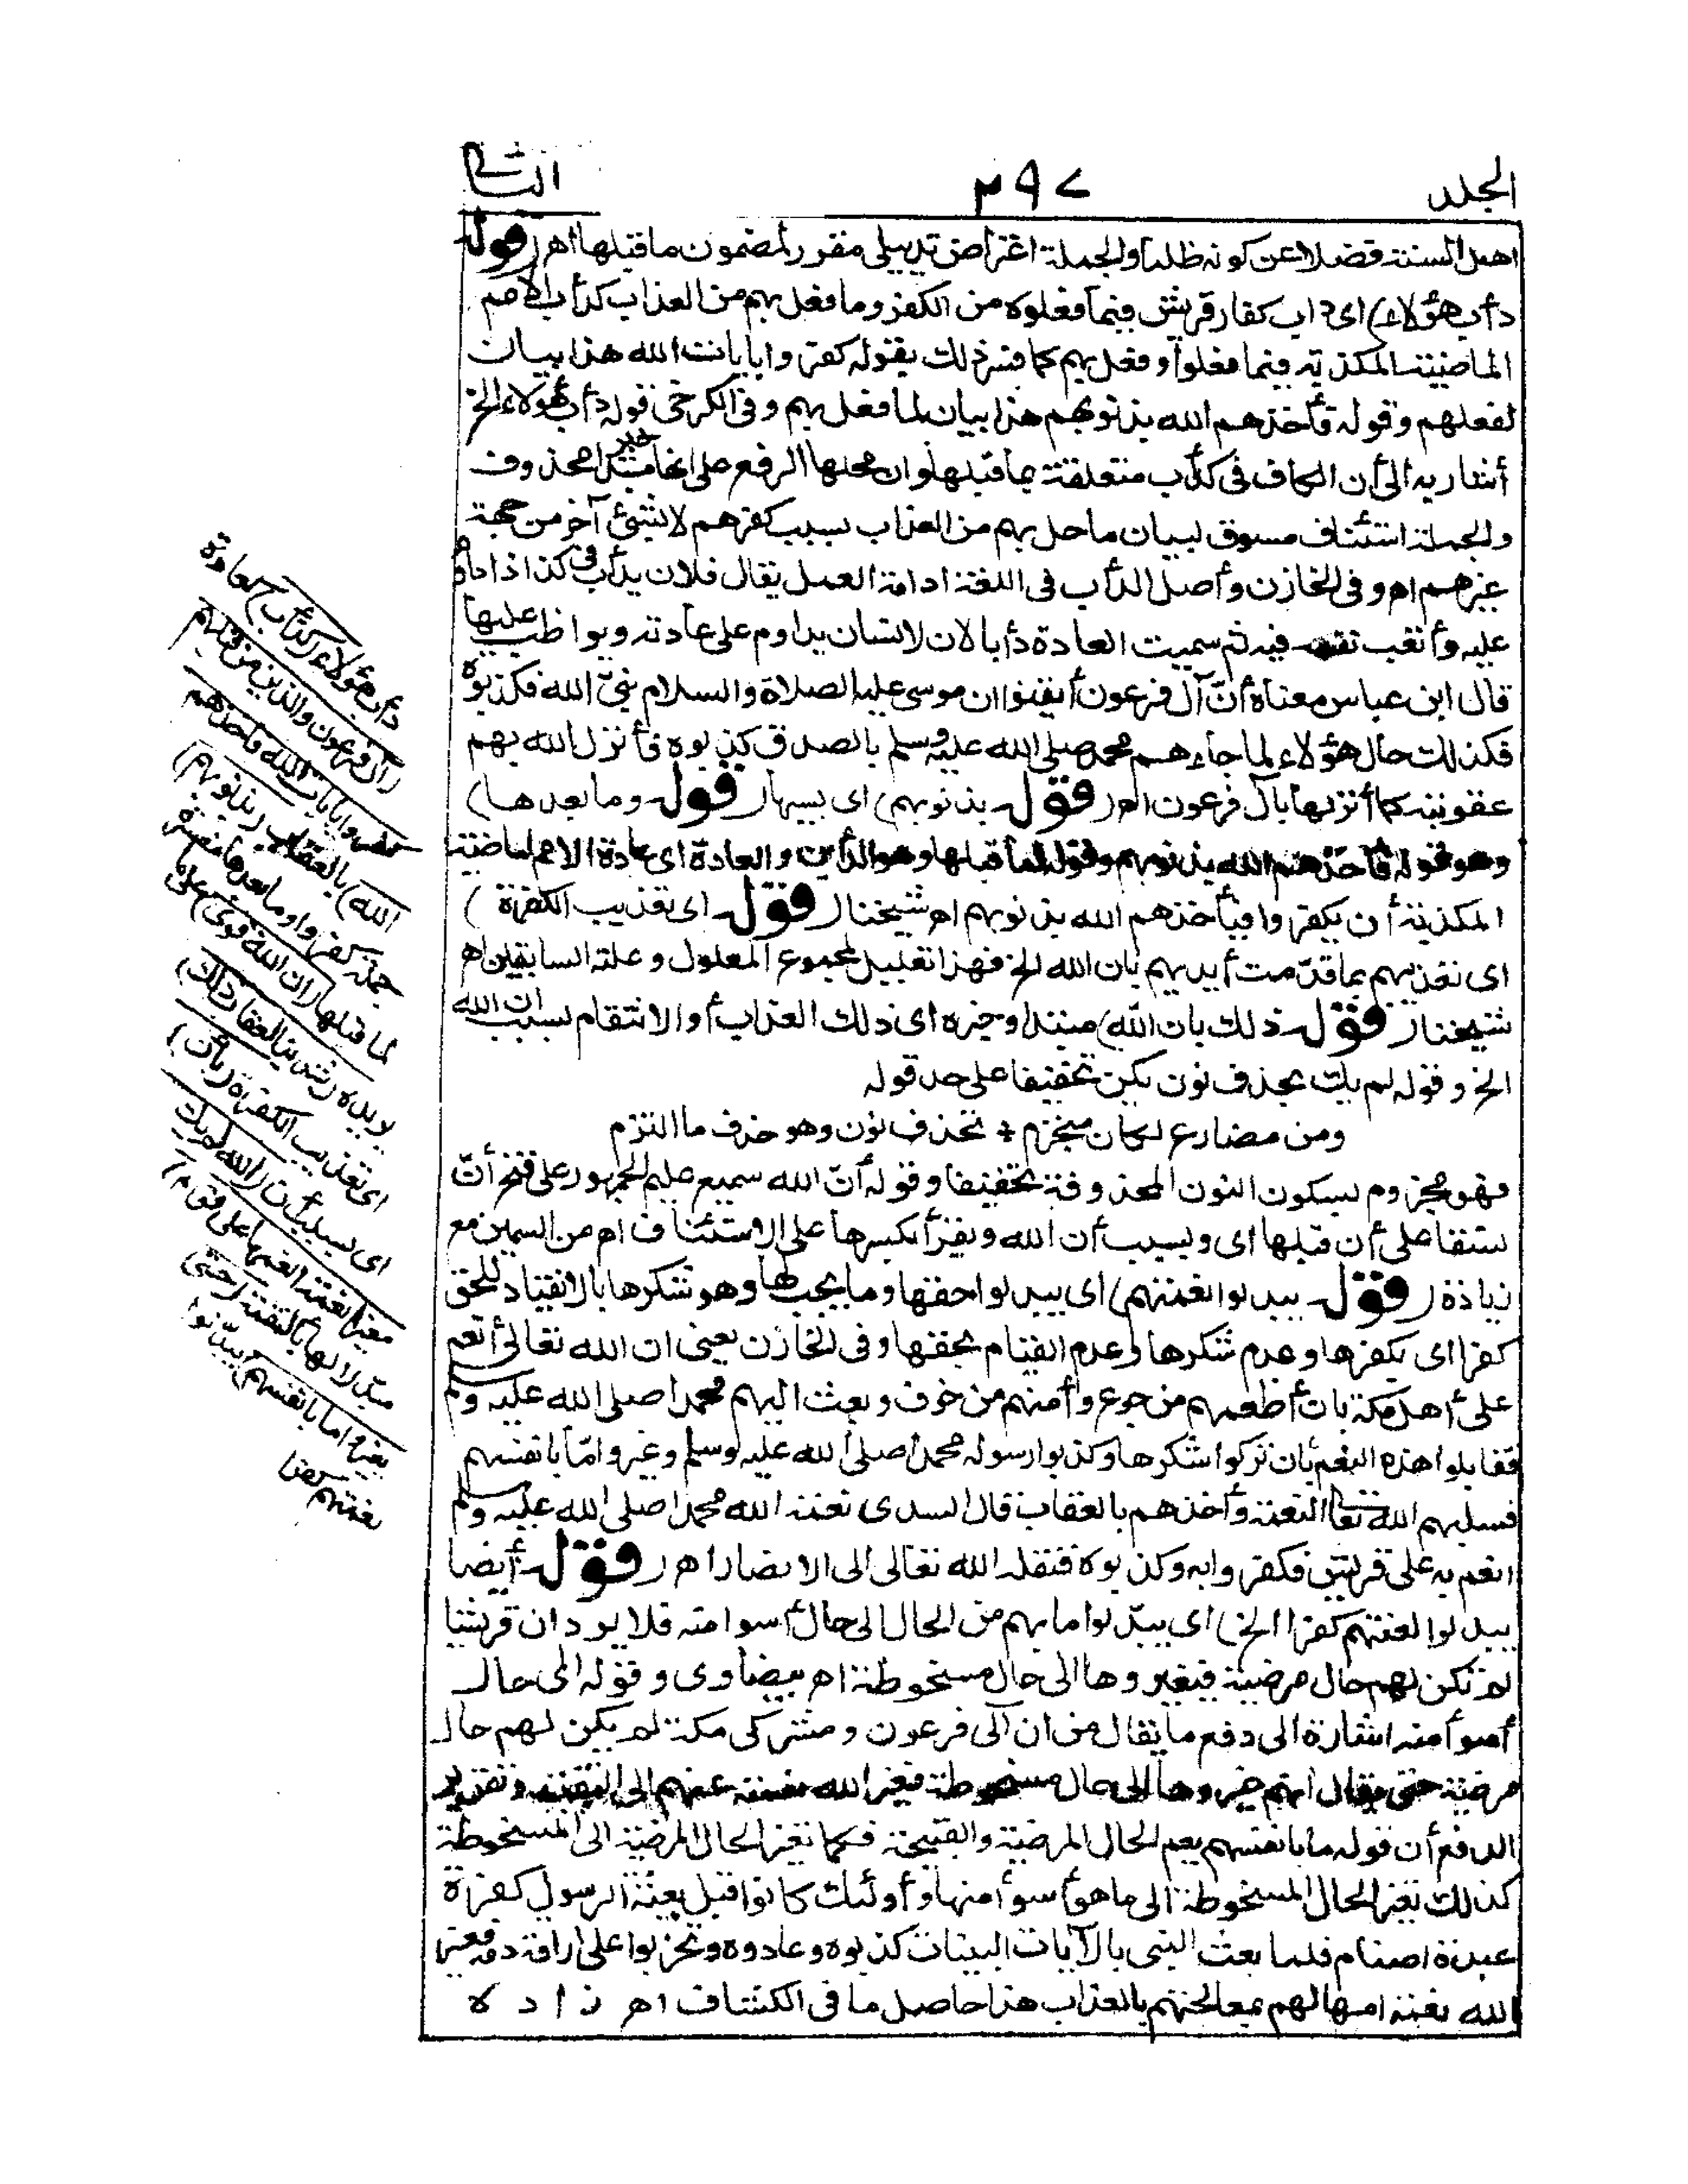 الجلد
٢٩٧
الثانى
اهل السنة فضلا عن كونه ظلما والجملة اعتراض تذييلى مقرر لمضمون ما قبلها اهر (قوله
دأب هؤلاء) اى دأب كفار قريش فيما فعلوه من الكفر وما فعل بهم من العذاب كدأب الأمم
الماضية المكذبة فيما فعلوا وفعل بهم كما فسر ذلك بقوله كفروا بايات الله هذا بيان
لفعلهم وقوله فأخذهم الله بذنوبهم هذا بيان لما فعل بهم وفى الكرخى قوله دأب هؤلاء الخ
أشار به الى أن الكاف فى كدأب متعلقة بما قبلها وان محلها الرفع على انها خبر مبتدا محذوف
والجملة استئناف مسوق لبيان ماحل بهم من العذاب بسبب كفرهم لا بشئ آخر من جهة
غيرهم اه وفى الخازن وأصل الدأب فى اللغة ادامة العمل يقال فلان يدأب فى كذا اذا داوم
عليه وأتعب نفسه فيه ثم سميت العادة دأبا لان الانسان يداوم على عادته ويواظب عليها
قال ابن عباس معناه أنّ آل فرعون أيقنوا ان موسى عليه الصلاة والسلام نبىّ الله فكذبوه
فكذلك حال هؤلاء لما جاءهم محمد صلى الله عليه وسلم بالصدق كذبوه فأنزل الله بهم
عقوبته كما أنزلها بآل فرعون اهر (قوله بذنوبهم) اى بسببها (قوله وما بعدها)
وهو قوله فأخذهم الله بذنوبهم وقوله لما قبلها وهو الدأب والعادة اى عادة الامم الماضية
المكذبة أن يكفروا فيأخذهم الله بذنوبهم اهر شيخنا (قوله اى تعذيب الكفرة)
اى تعذيبهم بما قدّمت أيديهم بان الله الخ فهذا تعليل لمجموع المعلول وعلته السابقين اهر
شيخنا (قوله ذلك بان الله) مبتدا وخبره اى ذلك العذاب أو الانتقام بسبب ان الله
الخ وقوله لم يك بحذف نون يكن تخفيفا على حد قوله
ومن مضارع لكان منجزم * تحذف نون وهو حذف ما التزم
فهو مجزوم بسكون النون المحذوفة تخفيفا وقوله أنّ الله سميع عليم الجمهور على فتح أنّ
نسقا على أن قبلها اى وبسبب أن الله ويقرأ بكسرها على الاستئناف اه من السمين مع
زيادة (قوله يبدلوا نعمتهم) اى يبدلوا حقها وما يجب لها وهو شكرها بالانقياد للحق
كفرا اى يكفرها وعدم شكرها وعدم القيام بحقها وفى الخازن يعنى ان الله تعالى أنعم
على أهل مكة بان أطعمهم من جوع وأمنهم من خوف وبعث اليهم محمدا صلى الله عليه وسلم
فقابلوا هذه النعم بان تركوا شكرها وكذبوا رسوله محمدا صلى الله عليه وسلم وغيروا ما بانفسهم
فسلبهم الله تعالى النعمة وأخذهم بالعقاب قال السدى نعمة الله محمدا صلى الله عليه وسلم
انعم به على قريش فكفروا به وكذبوه فنقله الله تعالى الى الانصار اهر (قوله أيضا
يبدلوا نعمتهم كفرا الخ) اى يبدّلوا ما بهم من الحال الى حال أسوا منه فلا يرد ان قريشا
لم تكن لهم حال مرضية فيغيروها الى حال مسخوطة اهر بيضاوى وقوله الى حال
أسوأ منه اشارة الى دفع ما يقال من ان آل فرعون ومشركى مكة لم يكن لهم حال
مرضية حتى يقال انهم غيروها الى حال مسخوطة فيغير الله نعمته عنهم الى النقمة وتقرير
الدفع أن قوله ما بانفسهم يعم الحال المرضية والقبيحة فكما تغير الحال المرضية الى المسخوطة
كذلك تغير الحال المسخوطة الى ما هو أسوأ منها وأولئك كانوا قبل بعثة الرسول كفرة
عبدة اصنام فلما بعث النبى بالآيات البينات كذبوه وعادوه وتحزبوا على اراقة دمه فغير
الله نعمة امهالهم بمعاجلتهم بالعذاب هذا حاصل ما فى الكشاف اهر زاده
دأب هؤلاء (كدأب) كعادة
(آل فرعون والذين من قبلهم
كفروا بايات الله فاخذهم
الله) بالعقاب (بذنوبهم)
جملة كفروا وما بعدها مفسرة
لما قبلها (ان الله قوى) على ما
يريده (شديد العقاب ذلك)
اى تعذيب الكفرة (بأن)
اى بسبب أن (الله لم يك
مغيرا نعمة انعمها على قوم)
مبدّلا لها بالنقمة (حتى
يغيروا ما بانفسهم) يبدّلوا
نعمتهم كفرا